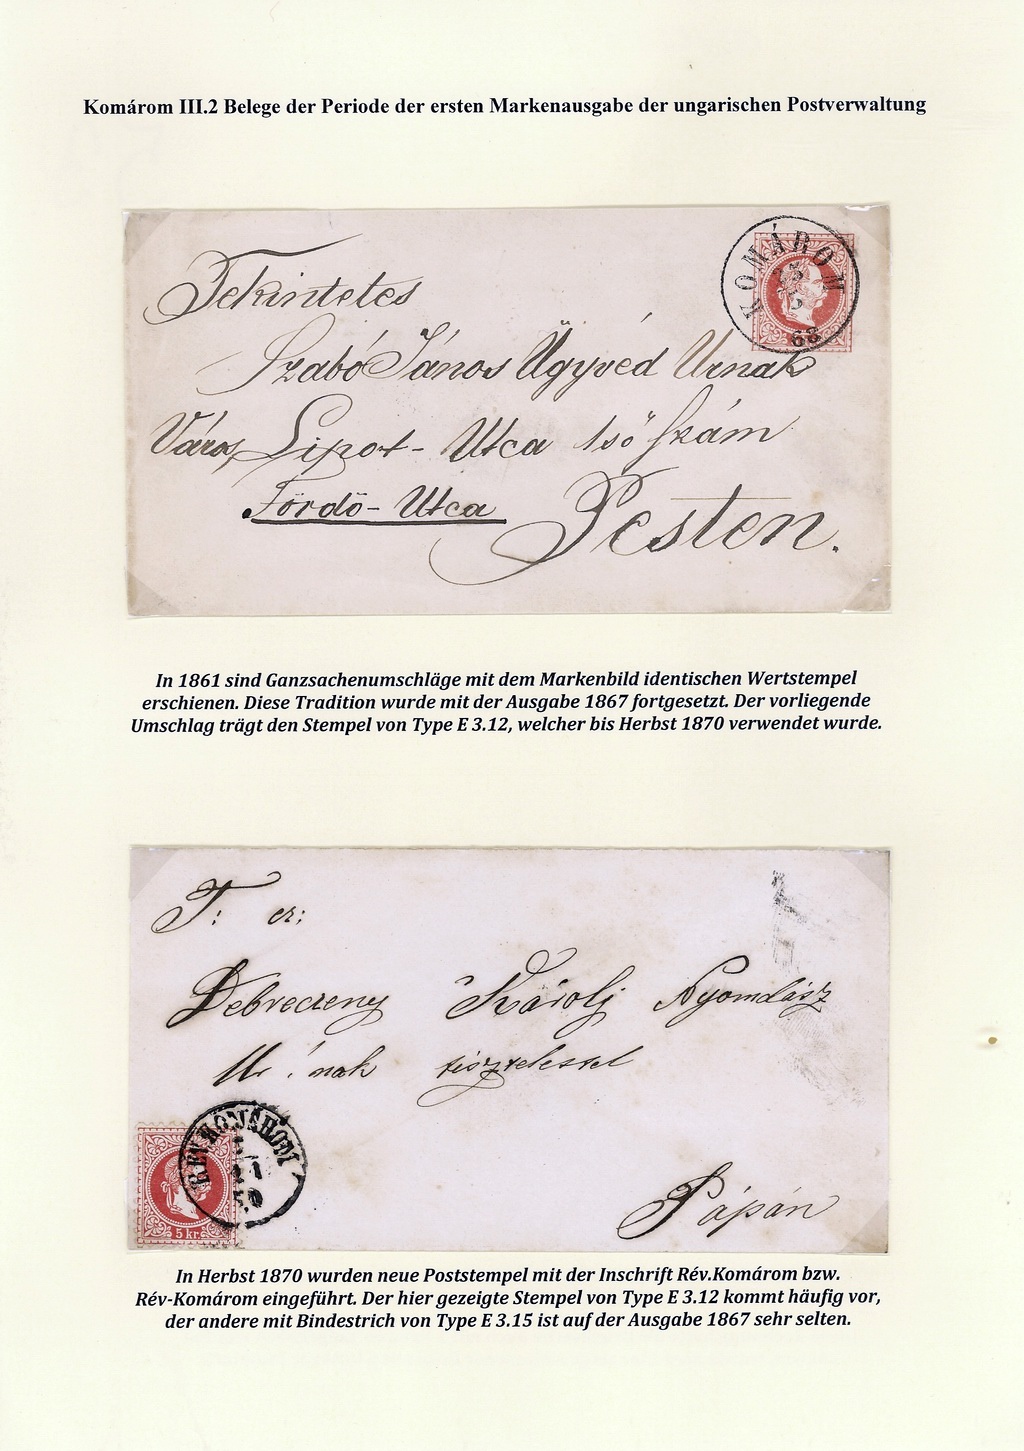 Komárom III.2 Belege der Periode der ersten Markenausgabe der ungarischen Postverwaltung
KOMÁROM
68
Tekintetes
Szabó János Ügyvéd Urnak
Város, Lipot - Utca 1ső szám
Fördö - Utca
Pesten.
In 1861 sind Ganzsachenumschläge mit dem Markenbild identischen Wertstempel
erschienen. Diese Tradition wurde mit der Ausgabe 1867 fortgesetzt. Der vorliegende
Umschlag trägt den Stempel von Type E 3.12, welcher bis Herbst 1870 verwendet wurde.
T: cz:
Debreczeny Károlj Nyomdász
Ur: nak tisztelettel
REV. KOMÁROM
5 kr.
Pápán
In Herbst 1870 wurden neue Poststempel mit der Inschrift Rév.Komárom bzw.
Rév-Komárom eingeführt. Der hier gezeigte Stempel von Type E 3.12 kommt häufig vor,
der andere mit Bindestrich von Type E 3.15 ist auf der Ausgabe 1867 sehr selten.